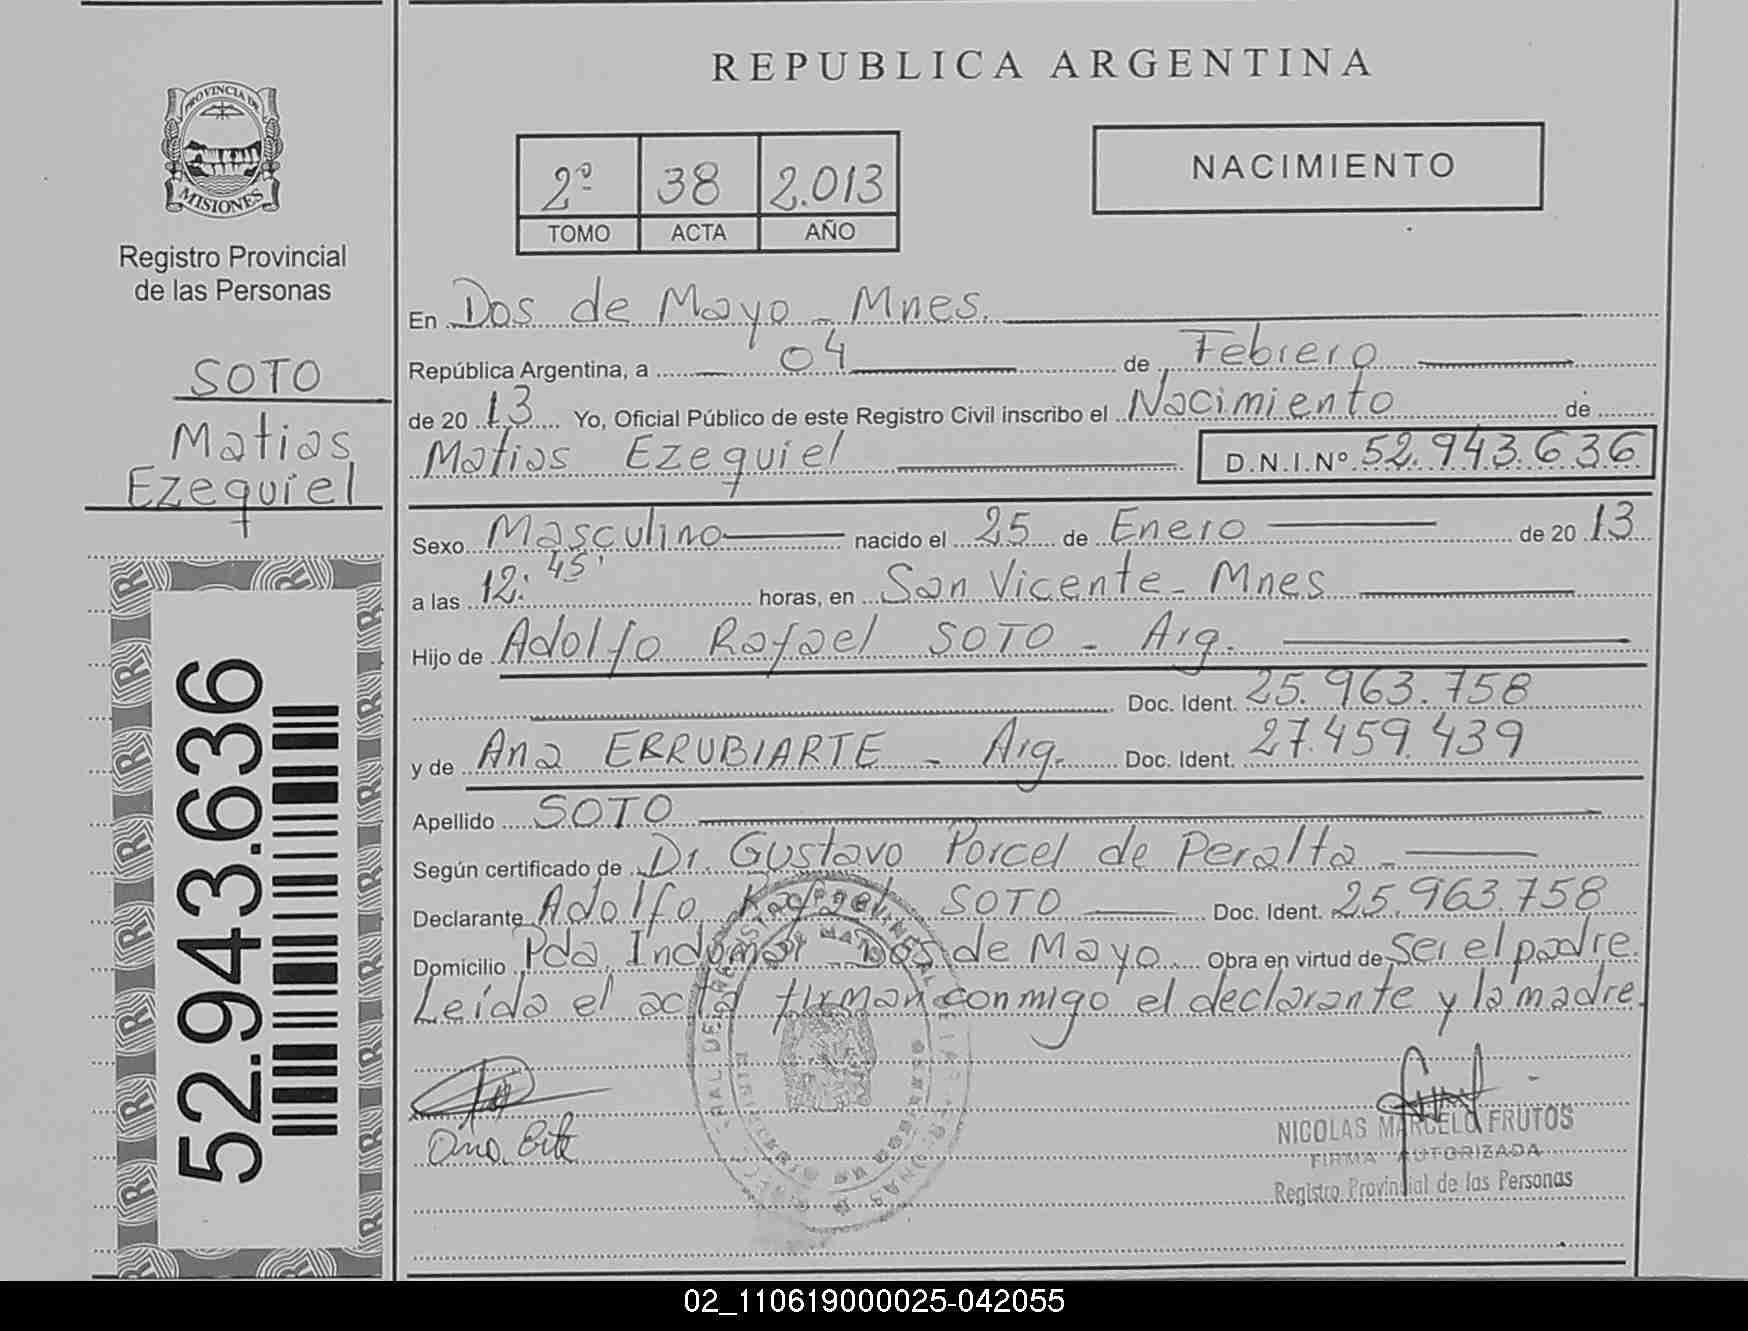 REPUBLICA ARGENTINA
PROVINCIA DE
MISIONES
Registro Provincial
de las Personas
SOTO
Matias
Ezequiel
52.943.636
2º 38 2.013
TOMO ACTA AÑO
NACIMIENTO
En Dos de Mayo - Mnes.
República Argentina, a 04 de Febrero
de 20 13 Yo, Oficial Público de este Registro Civil inscribo el Nacimiento de
Matias Ezequiel D.N.I.Nº 52.943.636
Sexo Masculino nacido el 25 de Enero de 20 13
a las 12:45' horas, en San Vicente - Mnes
Hijo de Adolfo Rafael SOTO - Arg.
Doc. Ident. 25.963.758
y de Ana ERRUBIARTE - Arg. Doc. Ident. 27.459.439
Apellido SOTO
Según certificado de Dr. Gustavo Porcel de Peralta -
Declarante Adolfo Rafael SOTO Doc. Ident. 25.963.758
Domicilio Pda. Indumar - Dos de Mayo. Obra en virtud de Ser el padre.
Leída el acta firman conmigo el declarante y la madre.
NICOLAS MARCELO FRUTOS
FIRMA AUTORIZADA
Registro Provincial de las Personas
02_110619000025-042055